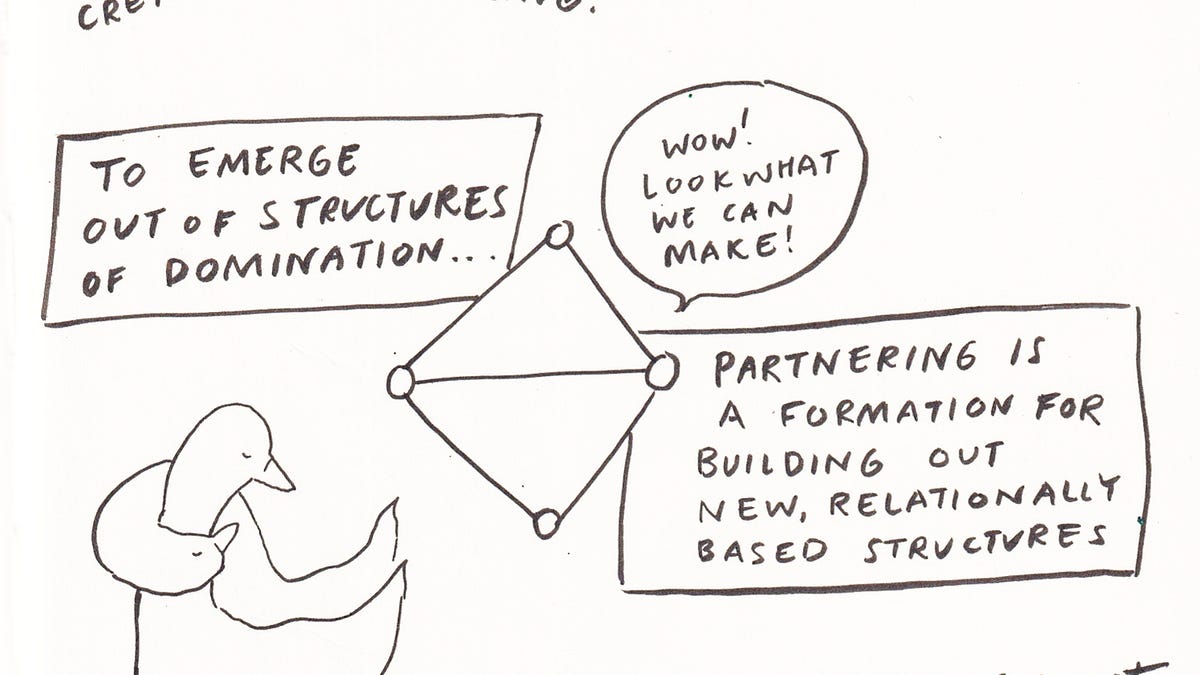 TO EMERGE
OUT OF STRUCTURES
OF DOMINATION...
WOW!
LOOK WHAT
WE CAN
MAKE!
PARTNERING IS
A FORMATION FOR
BUILDING OUT
NEW, RELATIONALLY
BASED STRUCTURES